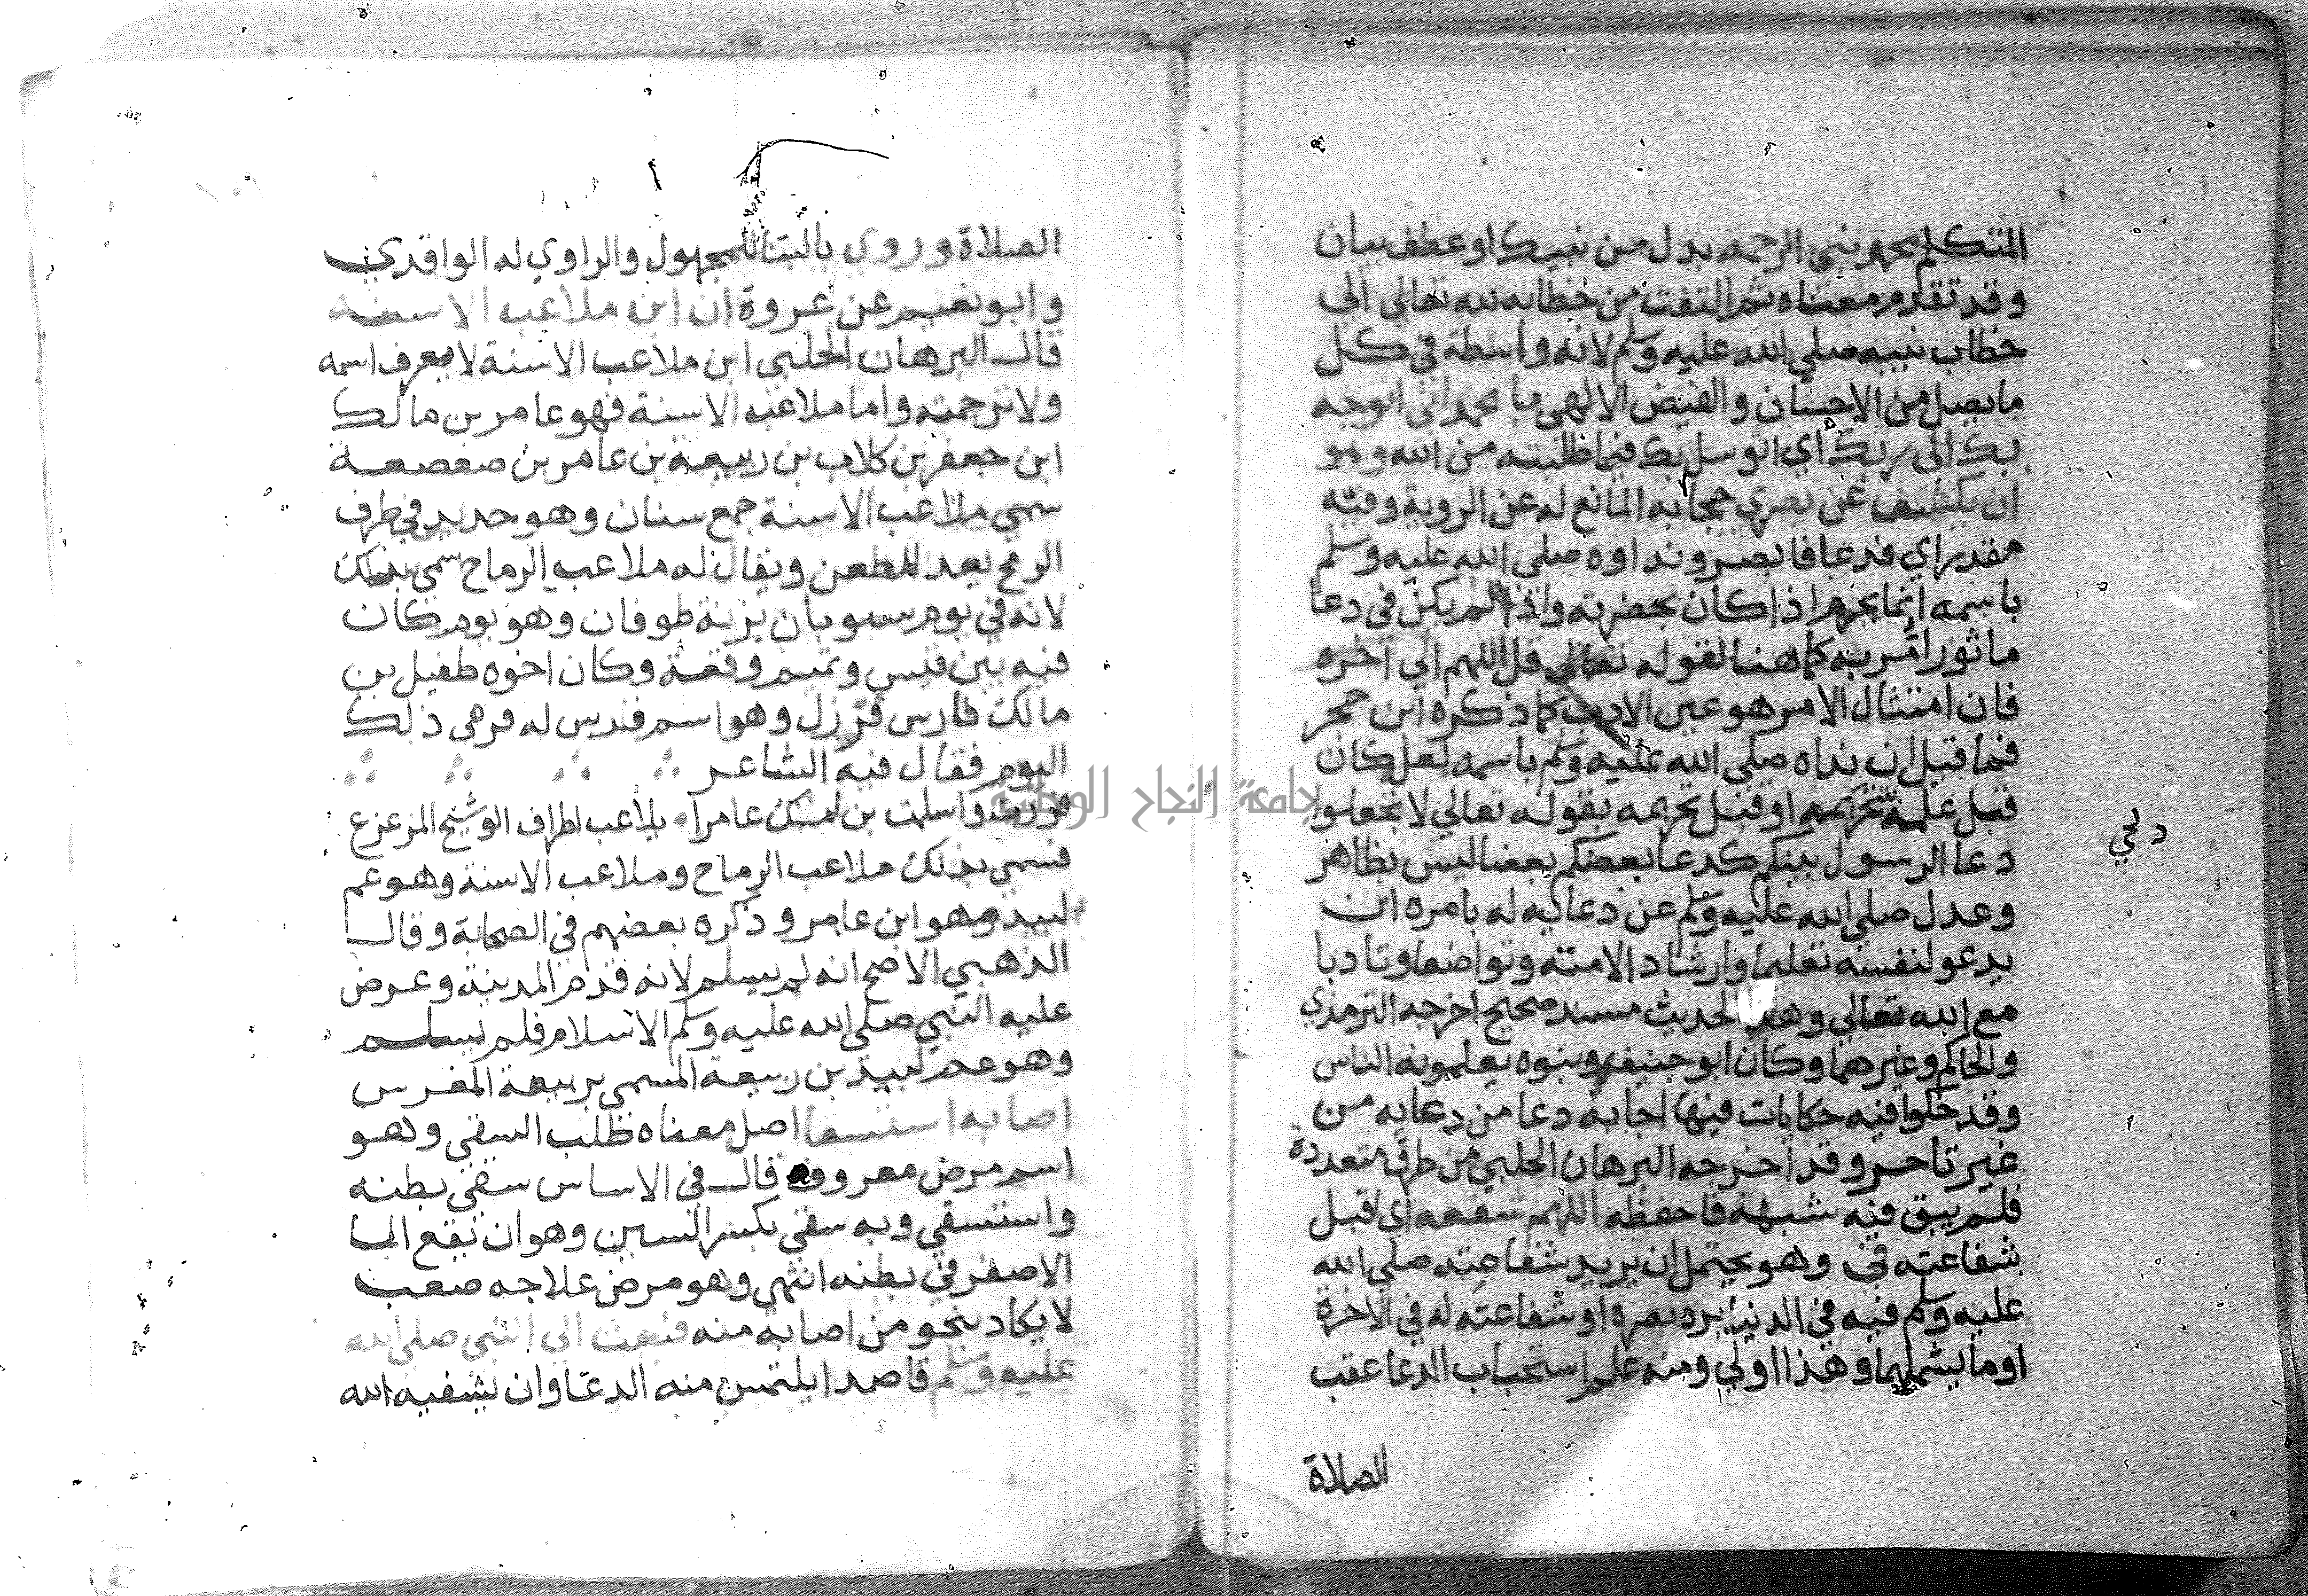 المتكلم بمحمد نبي الرحمة بدل من نبيك او عطف بيان
وقد تقدم معناه ثم التفت من خطابه لله تعالي الي
خطاب نبيه صلي الله عليه وسلم لانه واسطة في كل
ما يصل من الاحسان والفيض الالهي يا محمد اني اتوجه
بك الي ربك اي اتوسل بك فيما طلبته من الله وهو
ان يكشف عن بصري حجابه المانع له عن الروية وفيه
مقدر اي فدعا فابصر ونداوه صلي الله عليه وسلم
باسمه انما يحرم اذا كان بحضرته واذا لم يكن في دعا
ماثور امر به كما هنا لقوله تعالي قل اللهم الي اخره
فان امتثال الامر هو عين الادب كما ذكره ابن حجر
فما قيل ان نداه صلي الله عليه وسلم باسمه لعل كان
قبل علمه بتحريمه او قبل تحريمه بقوله تعالي لا تجعلوا
دعا الرسول بينكم كدعا بعضكم بعضا ليس بظاهر
دلجي
وعدل صلي الله عليه وسلم عن دعائه له بامره ان
يدعو لنفسه تعليما وارشادا لامته وتواضعا وتادبا
مع الله تعالي وهذا الحديث مسند صحيح اخرجه الترمذي
والحاكم وغيرهما وكان ابو حنيف وبنوه يعلمونه الناس
وقد حكوا فيه حكايات فيها اجابة دعا من دعا به من
غير تاخر وقد اخرجه البرهان الحلبي من طرق متعددة
فلم يبق فيه شبهة فاحفظه اللهم شفعه اي اقبل
شفاعته في وهو يحتمل ان يريد شفاعته صلي الله
عليه وسلم فيه في الدنيا برد بصره او شفاعته له في الاخرة
او ما يشملهما وهذا اولي ومنه علم استحباب الدعا عقب
الصلاة
الصلاة وروي بالبنا للمجهول والراوي له الواقدي
وابو نعيم عن عروة ان ابن ملاعب الاسنة
قال البرهان الحلبي ابن ملاعب الاسنة لا يعرف اسمه
ولا ترجمته واما ملاعب الاسنة فهو عامر بن مالك
ابن جعفر بن كلاب بن ربيعة بن عامر بن صعصعة
سمي ملاعب الاسنة جمع سنان وهو حديد في طرف
الرمح يعد للطعن ويقال له ملاعب الرماح سمي بذلك
لانه في يوم سوبان بزنة طوفان وهو يوم كان
فيه بين قيس وتميم وقعة وكان اخوه طفيل بن
مالك فارس قرزل وهو اسم فرس له فر في ذلك
اليوم فقال فيه الشاعر
فررت واسلمت بن امك عامرا يلاعب اطراف الوشيج المزعزع
فسمي بذلك ملاعب الرماح وملاعب الاسنة وهو عم
لبيد وهو ابن عامر وذكره بعضهم في الصحابة وقال
الذهبي الاصح انه لم يسلم لانه قدم المدينة وعرض
عليه النبي صلي الله عليه وسلم الاسلام فلم يسلم
وهو عم لبيد بن ربيعة المسمي بربيعة المقرس
اصابه استسقا اصل معناه طلب السقي وهو
اسم مرض معروف قال في الاساس سقي بطنه
واستسقي وبه سقي بكسر السين وهو ان يقع الما
الاصفر في بطنه انتهي وهو مرض علاجه صعب
لا يكاد ينجو من اصابه منه فبعث الي النبي صلي الله
عليه وسلم قاصدا يلتمس منه الدعا وان يشفيه الله